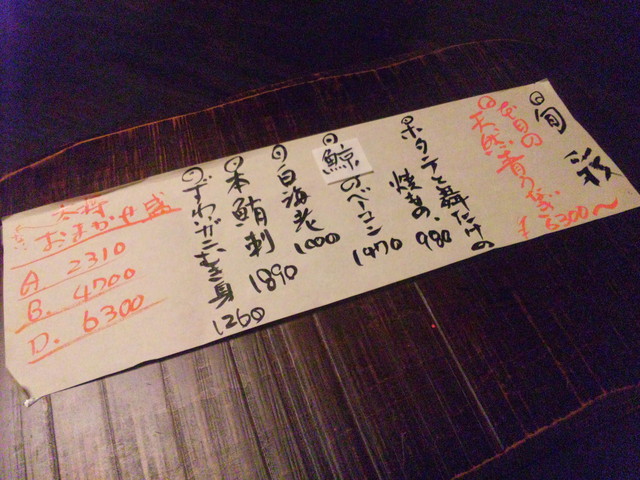 旬彩
天然青うなぎ
¥6300〜
ホタテと舞たけの
焼もの 980
鯨のベーコン
1470
白海老
1000
本鮪刺
1890
ずわいがにむき身
1260
おまかせ盛
A 2310
B. 4700
D. 6300